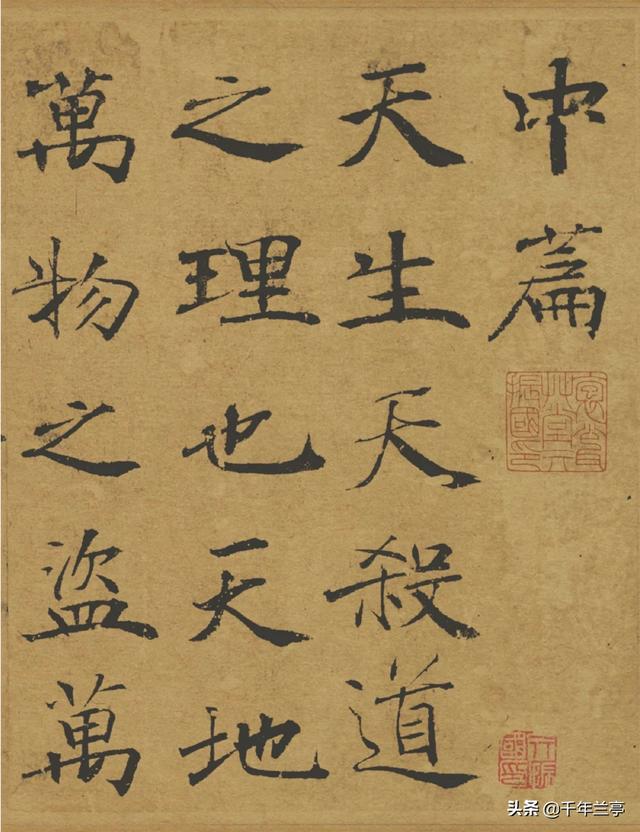 中篇
天生天殺道
之理也天地
萬物之盜萬
头条 @千年兰亭